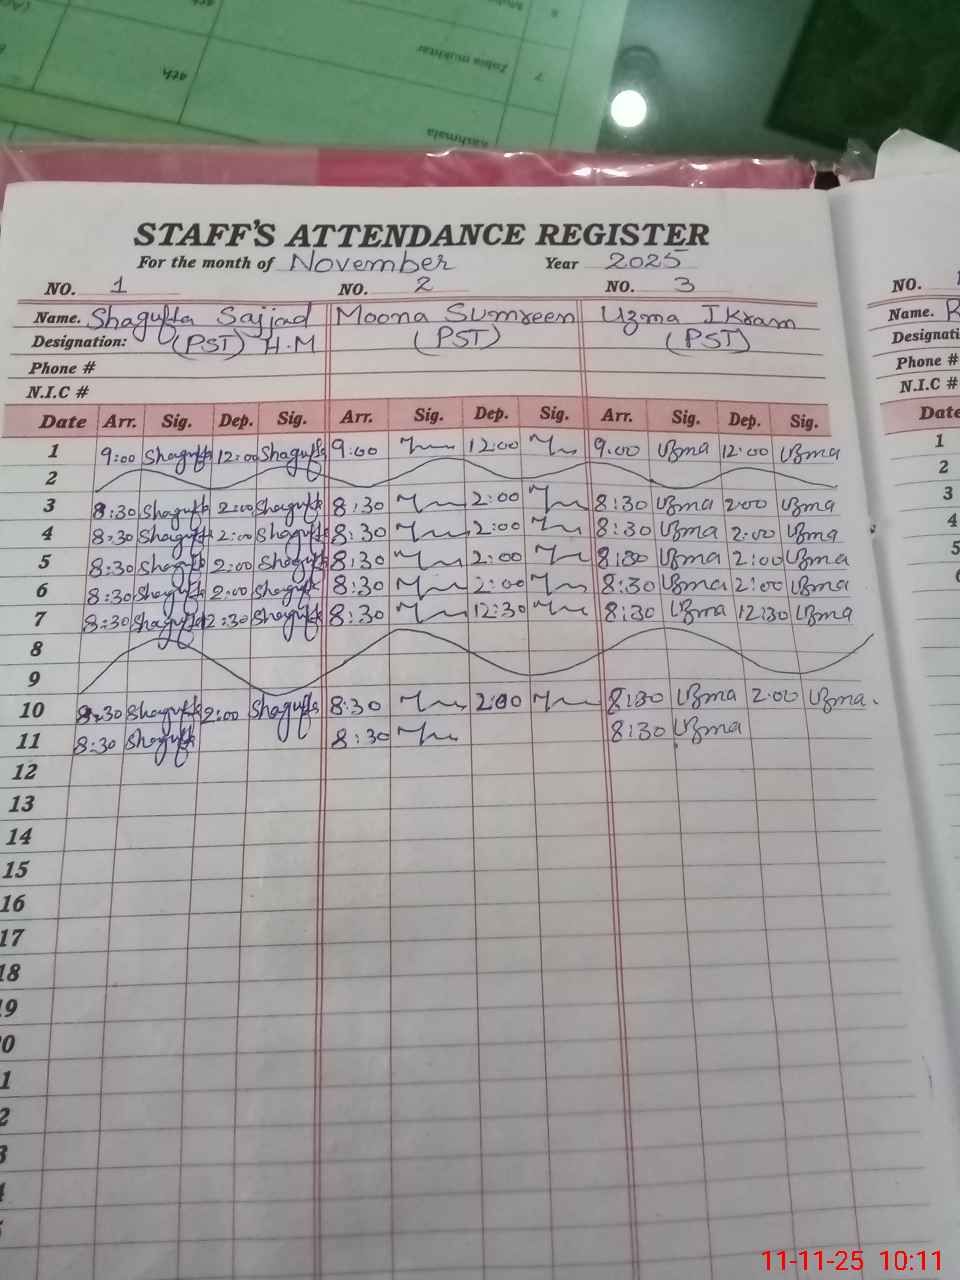 7 Zobia mukhtar 4th
Kashmala
STAFF'S ATTENDANCE REGISTER
For the month of November Year 2025
NO. 1 NO. 2 NO. 3 NO.
Name. Shagufta Sajjad Moona Sumreen Uzma Ikram Name. R
Designation: (PST) H.M (PST) (PST) Designati
Phone # Phone #
N.I.C # N.I.C #
Date Arr. Sig. Dep. Sig. Arr. Sig. Dep. Sig. Arr. Sig. Dep. Sig. Date
1 9:00 Shagufta 12:00 Shagufta 9:00 12:00 9.00 Uzma 12:00 Uzma 1
2 2
3 8:30 Shagufta 2:00 Shagufta 8:30 2:00 8:30 Uzma 2:00 Uzma 3
4 8:30 Shagufta 2:00 Shagufta 8:30 2:00 8:30 Uzma 2:00 Uzma 4
5 8:30 Shagufta 2:00 Shagufta 8:30 2:00 8:30 Uzma 2:00 Uzma 5
6 8:30 Shagufta 2:00 Shagufta 8:30 2:00 8:30 Uzma 2:00 Uzma
7 8:30 Shagufta 12:30 Shagufta 8:30 12:30 8:30 Uzma 12:30 Uzma
8
9
10 8:30 Shagufta 2:00 Shagufta 8:30 2:00 8:30 Uzma 2:00 Uzma.
11 8:30 Shagufta 8:30 8:30 Uzma
12
13
14
15
16
17
18
19
0
1
2
3
4
5
11-11-25 10:11